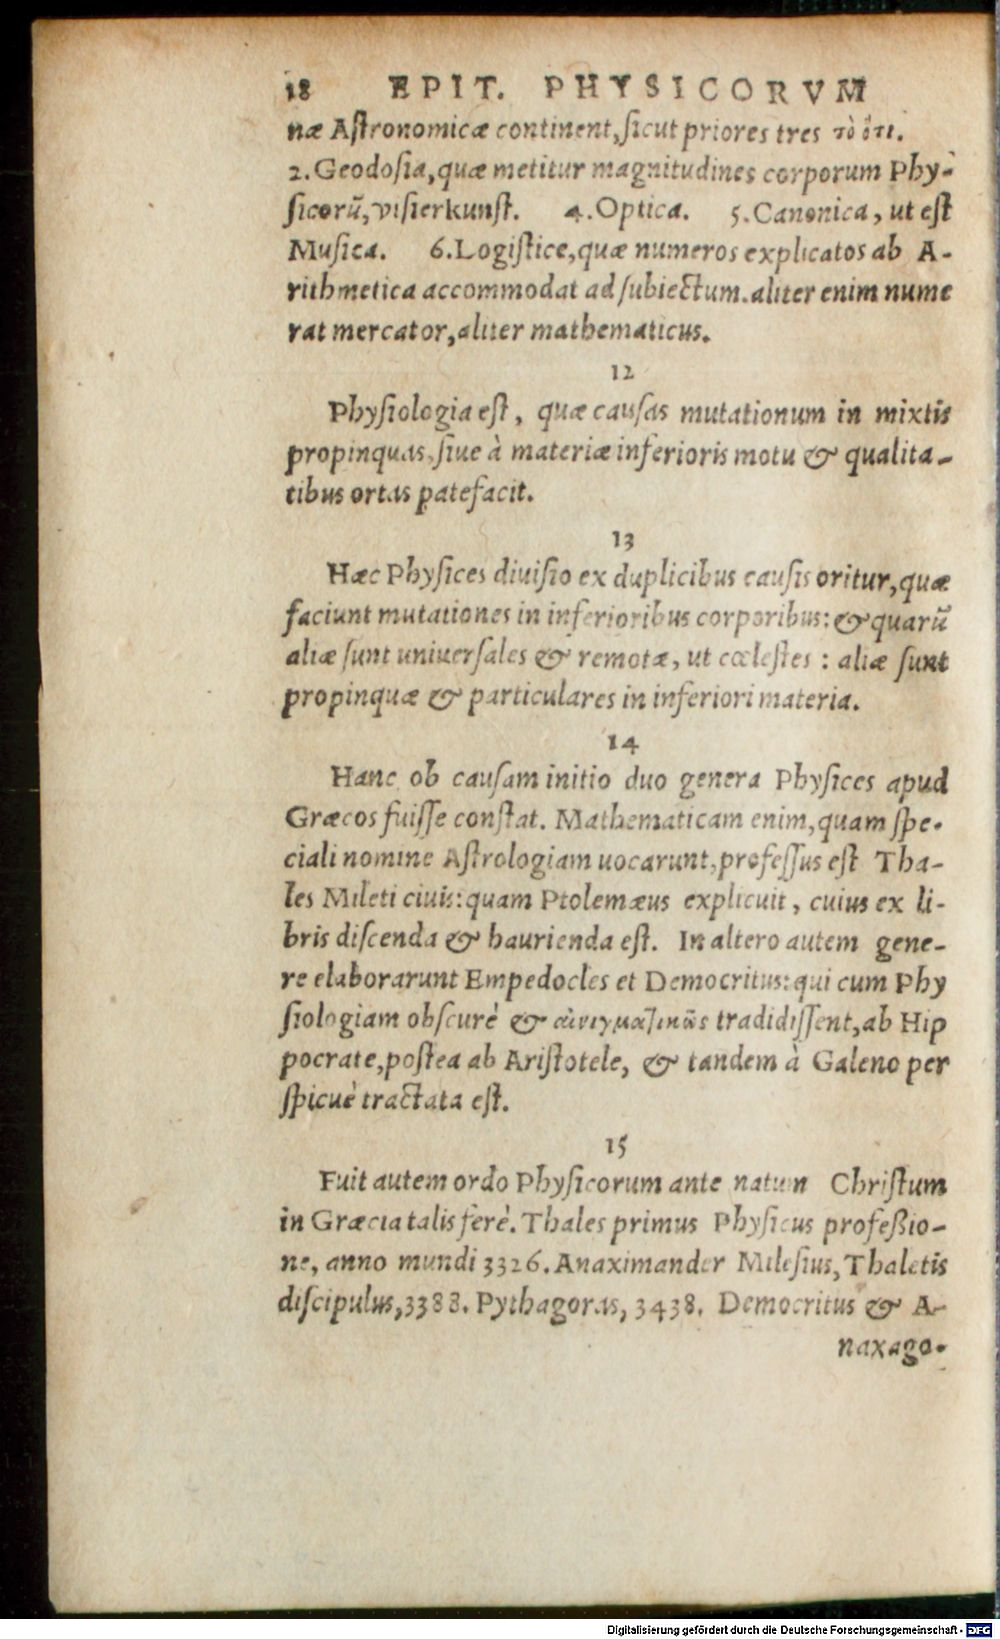 18 EPIT. PHYSICORVM
næ Aſtronomicæ continent, ſicut priores tres τὸ ὅτι.
2. Geodoſia, quæ metitur magnitudines corporum Phy-
ſicorũ, viſierkunſt. 4. Optica. 5. Canonica, ut eſt
Muſica. 6. Logiſtice, quæ numeros explicatos ab A-
rithmetica accommodat ad ſubiectum. aliter enim nume
rat mercator, aliter mathematicus.
12
Phyſiologia eſt, quæ cauſas mutationum in mixtis
propinquas, ſiue à materiæ inferioris motu & qualita-
tibus ortas patefacit.
13
Hæc Phyſices diuiſio ex duplicibus cauſis oritur, quæ
faciunt mutationes in inferioribus corporibus: & quarũ
aliæ ſunt uniuerſales & remotæ, ut cœleſtes: aliæ ſunt
propinquæ & particulares in inferiori materia.
14
Hanc ob cauſam initio duo genera Phyſices apud
Græcos fuiſſe conſtat. Mathematicam enim, quam ſpe-
ciali nomine Aſtrologiam uocarunt, profeſſus eſt Tha-
les Mileti ciuis: quam Ptolemæus explicuit, cuius ex li-
bris diſcenda & haurienda eſt. In altero autem gene-
re elaborarunt Empedocles et Democritus: qui cum Phy
ſiologiam obſcurè & αἰνιγματικῶς tradidiſſent, ab Hip
pocrate, poſtea ab Ariſtotele, & tandem à Galeno per
ſpicuè tractata eſt.
15
Fuit autem ordo Phyſicorum ante natum Chriſtum
in Græcia talis ferè. Thales primus Phyſicus profeßio-
ne, anno mundi 3326. Anaximander Mileſius, Thaletis
diſcipulus, 3388. Pythagoras, 3438. Democritus & A-
naxago-
Digitalisierung gefördert durch die Deutsche Forschungsgemeinschaft - DFG